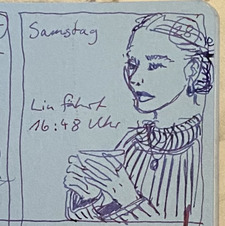 Samstag
Lin fährt
16:48 Uhr